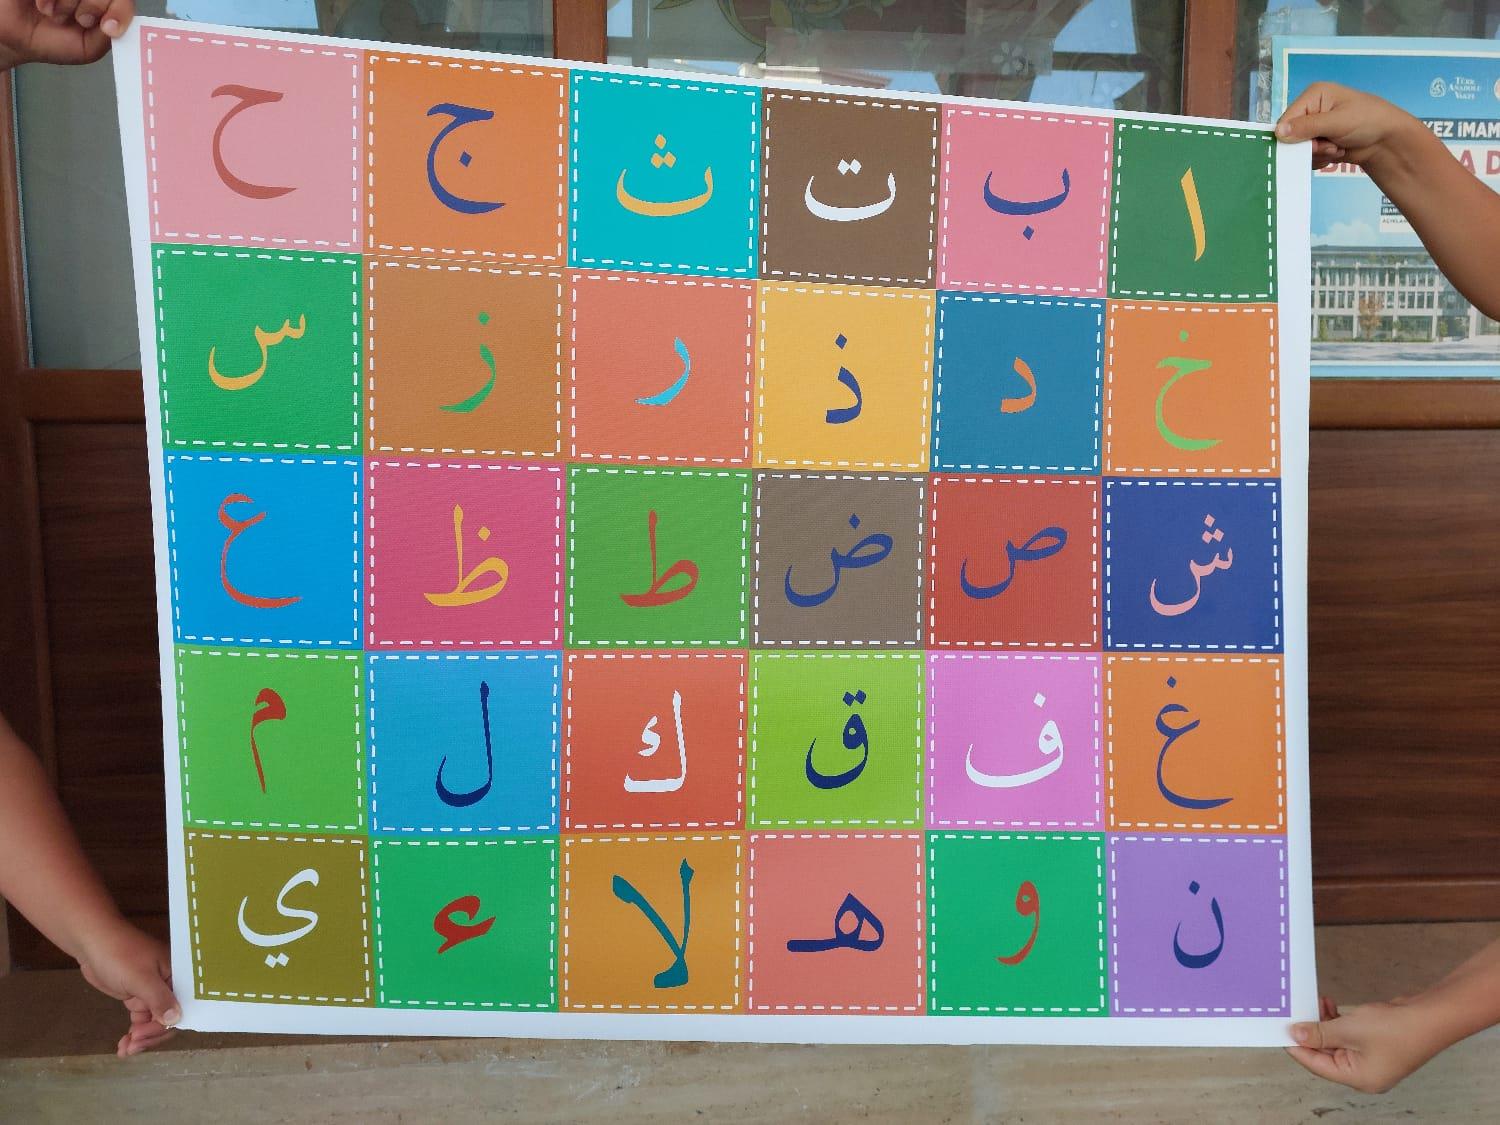 ا ب ت ث ج ح
خ د ذ ر ز س
ش ص ض ط ظ ع
غ ف ق ك ل م
ن و هـ لا ء ي
TÜRK
ANADOLU
VAKFI